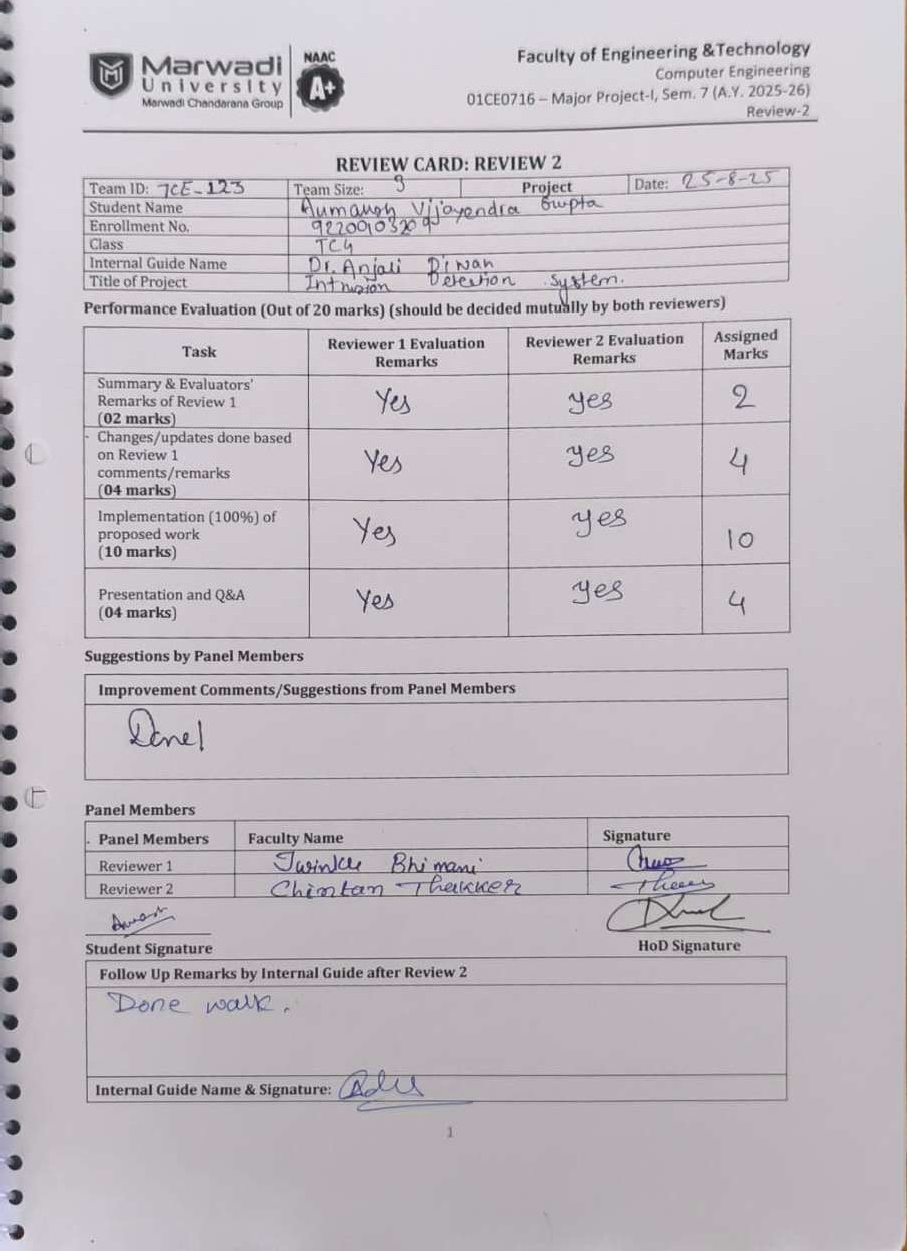 Marwadi
University
Marwadi Chandarana Group
NAAC
A+
Faculty of Engineering &Technology
Computer Engineering
01CE0716 – Major Project-I, Sem. 7 (A.Y. 2025-26)
Review-2
REVIEW CARD: REVIEW 2
Team ID: 7CE-123 Team Size: Project Date: 25-8-25
Student Name Vijayendra Gupta
Enrollment No.
Class TC4
Internal Guide Name Dr. Anjali Diwan
Title of Project Intrusion Detection system.
Performance Evaluation (Out of 20 marks) (should be decided mutually by both reviewers)
Task Reviewer 1 Evaluation Remarks Reviewer 2 Evaluation Remarks Assigned Marks
Summary & Evaluators'
Remarks of Review 1
(02 marks) Yes yes 2
Changes/updates done based
on Review 1
comments/remarks
(04 marks) Yes yes 4
Implementation (100%) of
proposed work
(10 marks) Yes yes 10
Presentation and Q&A
(04 marks) Yes yes 4
Suggestions by Panel Members
Improvement Comments/Suggestions from Panel Members
Panel Members
Panel Members Faculty Name Signature
Reviewer 1 Twinkle Bhimani
Reviewer 2 Chintan Thakker
Student Signature HoD Signature
Follow Up Remarks by Internal Guide after Review 2
Done walk.
Internal Guide Name & Signature:
1